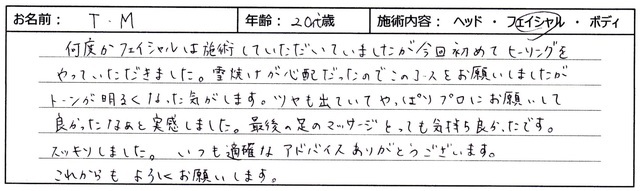 お名前： T・M 年齢：20代歳 施術内容：ヘッド・フェイシャル・ボディ
何度かフェイシャルは施術していただいていましたが今回初めてヒーリングを
やっていただきました。雪焼けが心配だったのでこのコースをお願いしましたが
トーンが明るくなった気がします。ツヤも出ていてやっぱりプロにお願いして
良かったなぁと実感しました。最後の足のマッサージとっても気持ち良かったです。
スッキリしました。いつも適確なアドバイスありがとうございます。
これからもよろしくお願いします。